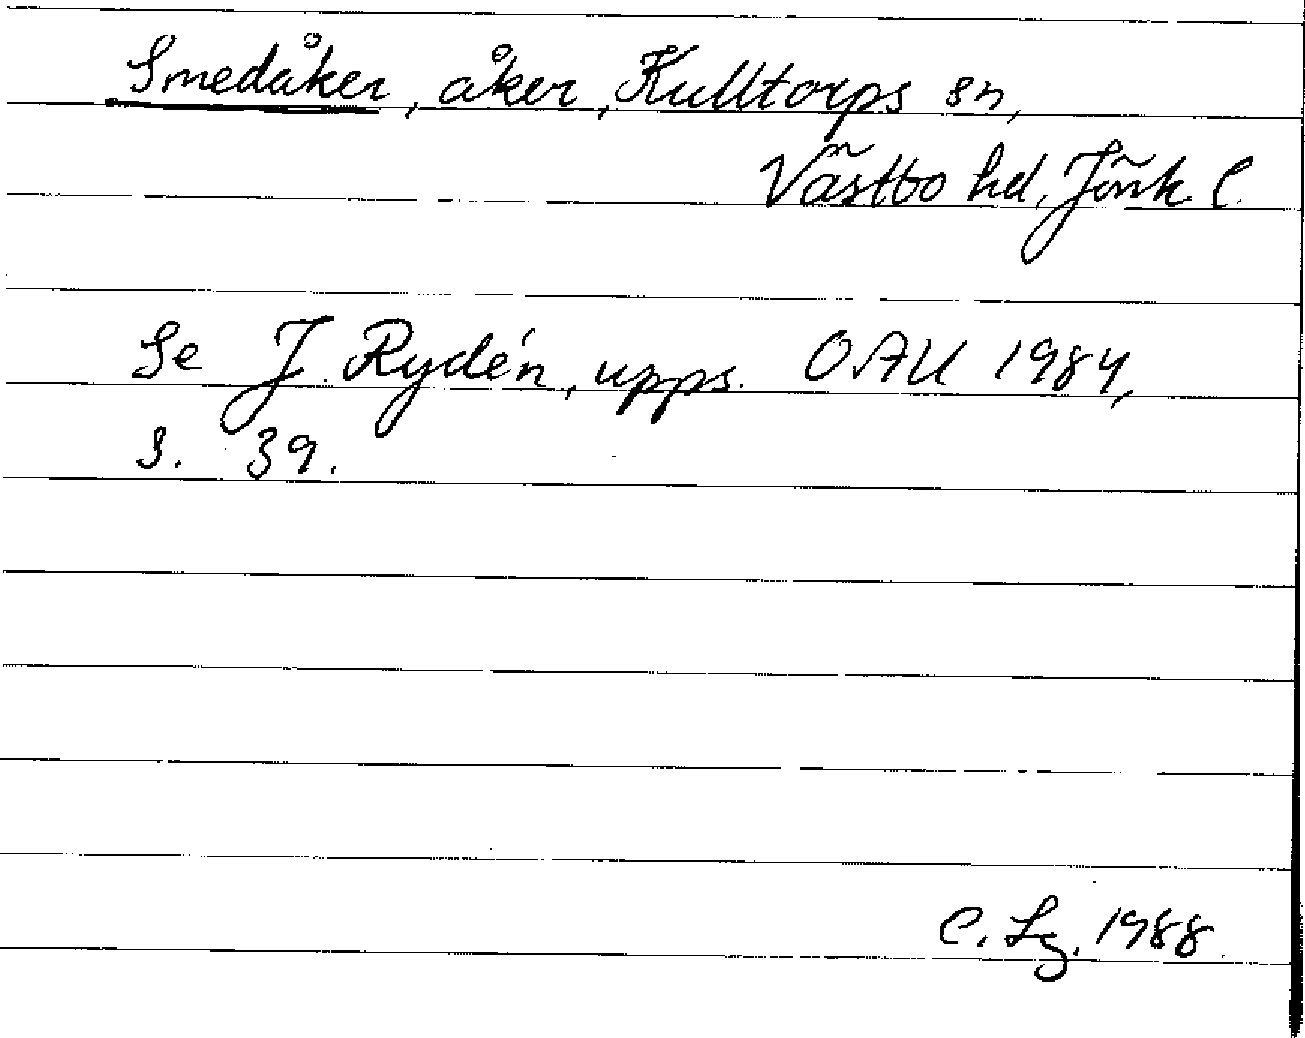 Smedåker, åker, Kulltorps sn,
Västbo hd, Jönk. l.
Se J. Rydén, upps. OAU 1984,
s. 39.
C. Lg. 1988.